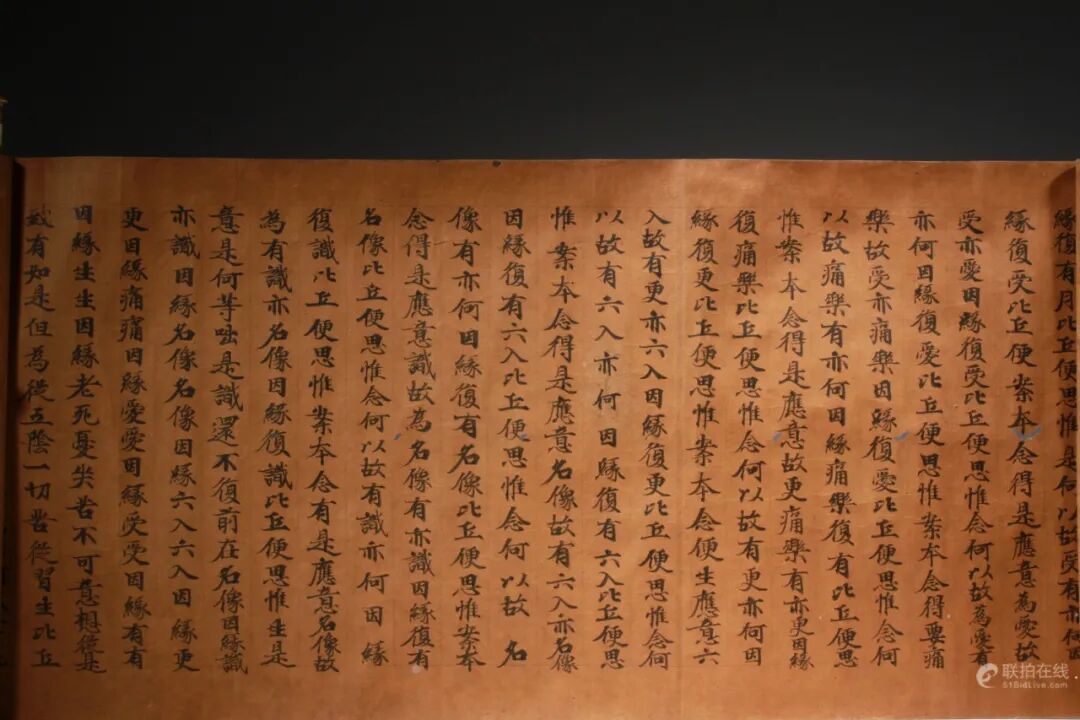 緣復有月比丘便思惟是何以故受有亦何因
緣復受比丘便案本念得是應意為愛故
受亦愛因緣復受比丘便思惟念何以故為愛有
亦何因緣復愛比丘便思惟案本念得要痛
樂故受亦痛樂因緣復愛比丘便思惟念何
以故痛樂有亦何因緣痛樂復有比丘便思
惟案本念得是應意故更痛樂有亦更因緣
復痛樂比丘便思惟念何以故有更亦何因
緣復更比丘便思惟案本念便生應意六
入故有更亦六入因緣復更比丘便思惟念何
以故有六入亦何因緣復有六入比丘便思
惟案本念得是應意名像故有六入亦名像
因緣復有六入比丘便思惟念何以故名
像有亦何因緣復有名像比丘便思惟案本
念得是應意識故為名像有亦識因緣復有
名像比丘便思惟念何以故有識亦何因緣
復識比丘便思惟案本念有是應意名像故
為有識亦名像因緣復識比丘便思惟生是
意是何等咄是識還不復前在名像因緣識
亦識因緣名像名像因緣六入六入因緣更
更因緣痛痛因緣愛愛因緣受受因緣有有
因緣生生因緣老死憂哭苦不可意想從是
致有如是但為從五陰一切苦從習生比丘
联拍在线
51BidLive.com